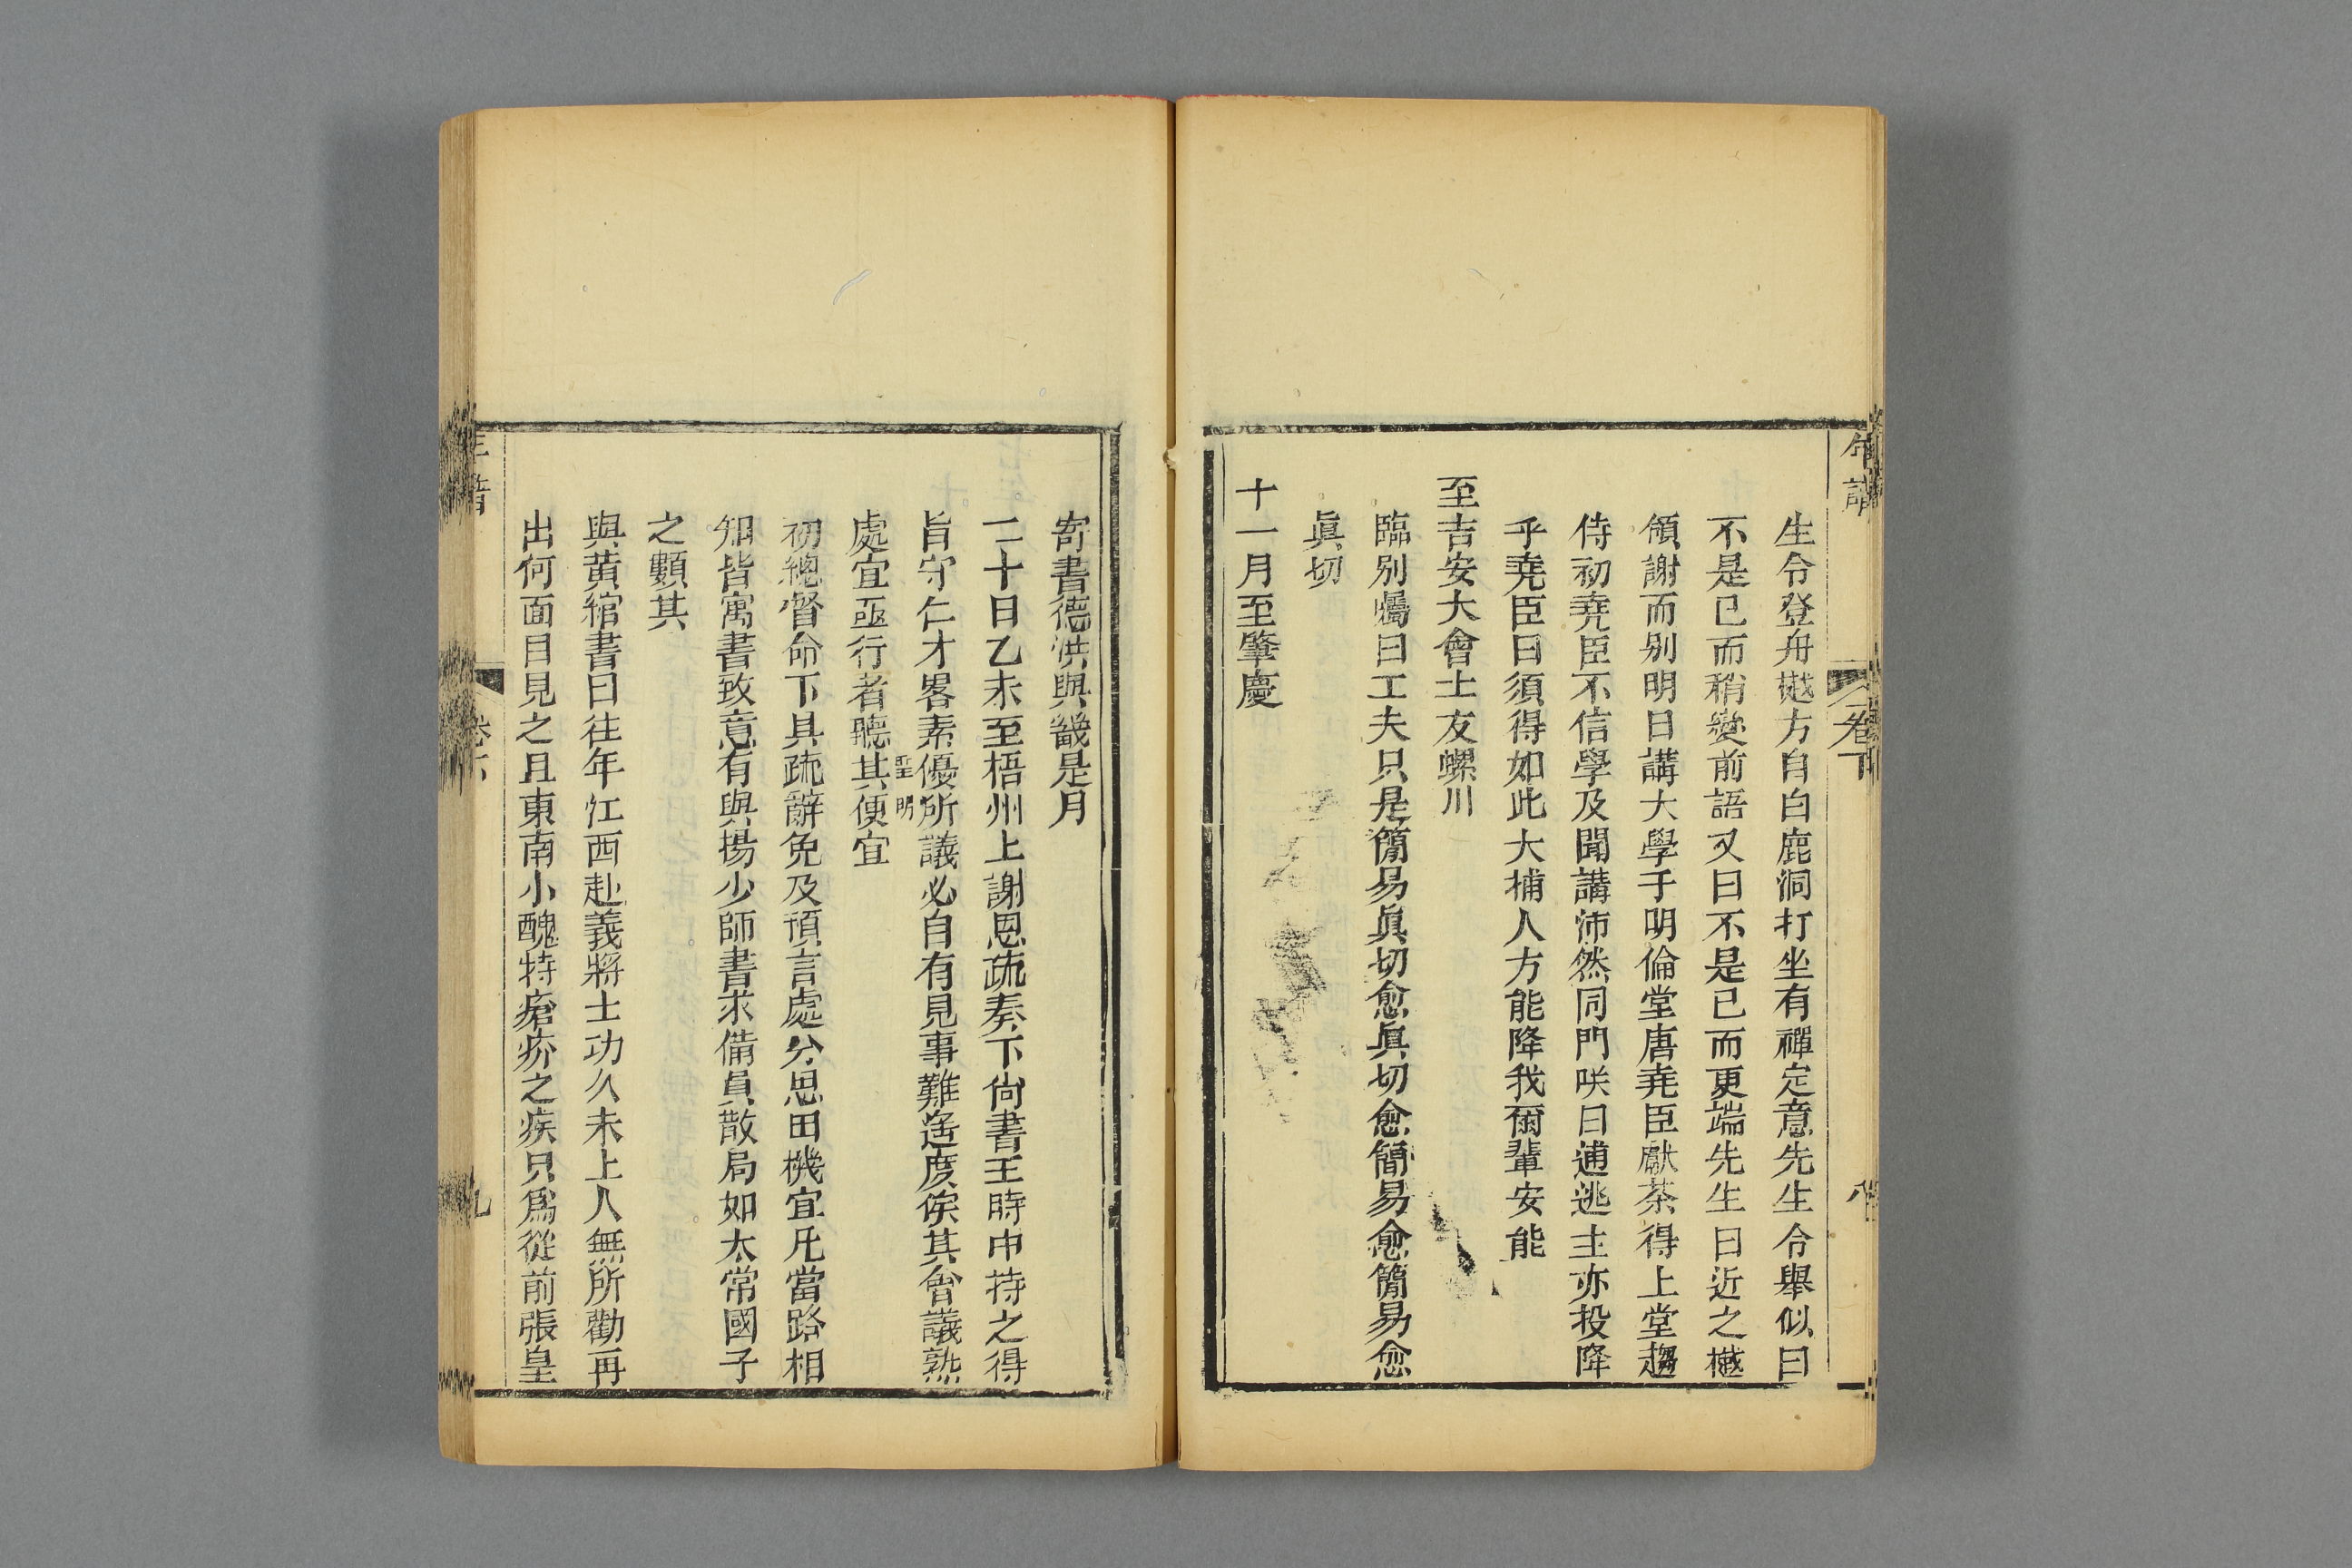 年譜 卷下 八
生令登舟樾方自白鹿洞打坐有禪定意先生令舉似曰
不是已而稍變前語又曰不是已而更端先生曰近之樾
領謝而别明日講大學于明倫堂唐尭臣獻茶得上堂趨
侍初尭臣不信學及聞講沛然同門咲曰逋逃主亦投降
乎尭臣曰須得如此大捕人方能降我爾輩安能
至吉安大會士友螺川
臨別囑曰工夫只是簡易眞切愈眞切愈簡易愈簡易愈
眞切
十一月至肇慶
寄書德洪與畿是月
二十日乙未至梧州上謝恩疏奏下尙書王時中持之得
旨守仁才畧素優所議必自有見事難遥度俟其會議熟
聖明
處宜亟行者聽其便宜
初總督命下具疏辭免及預言處分思田機宜凡當路相
知皆寓書致意有與揚少師書求備員散局如太常國子
之類其
與黄綰書曰往年江西赴義將士功久未上人無所勸再
出何面目見之且東南小醜特瘡疥之疾只爲從前張皇
年譜 卷下 九